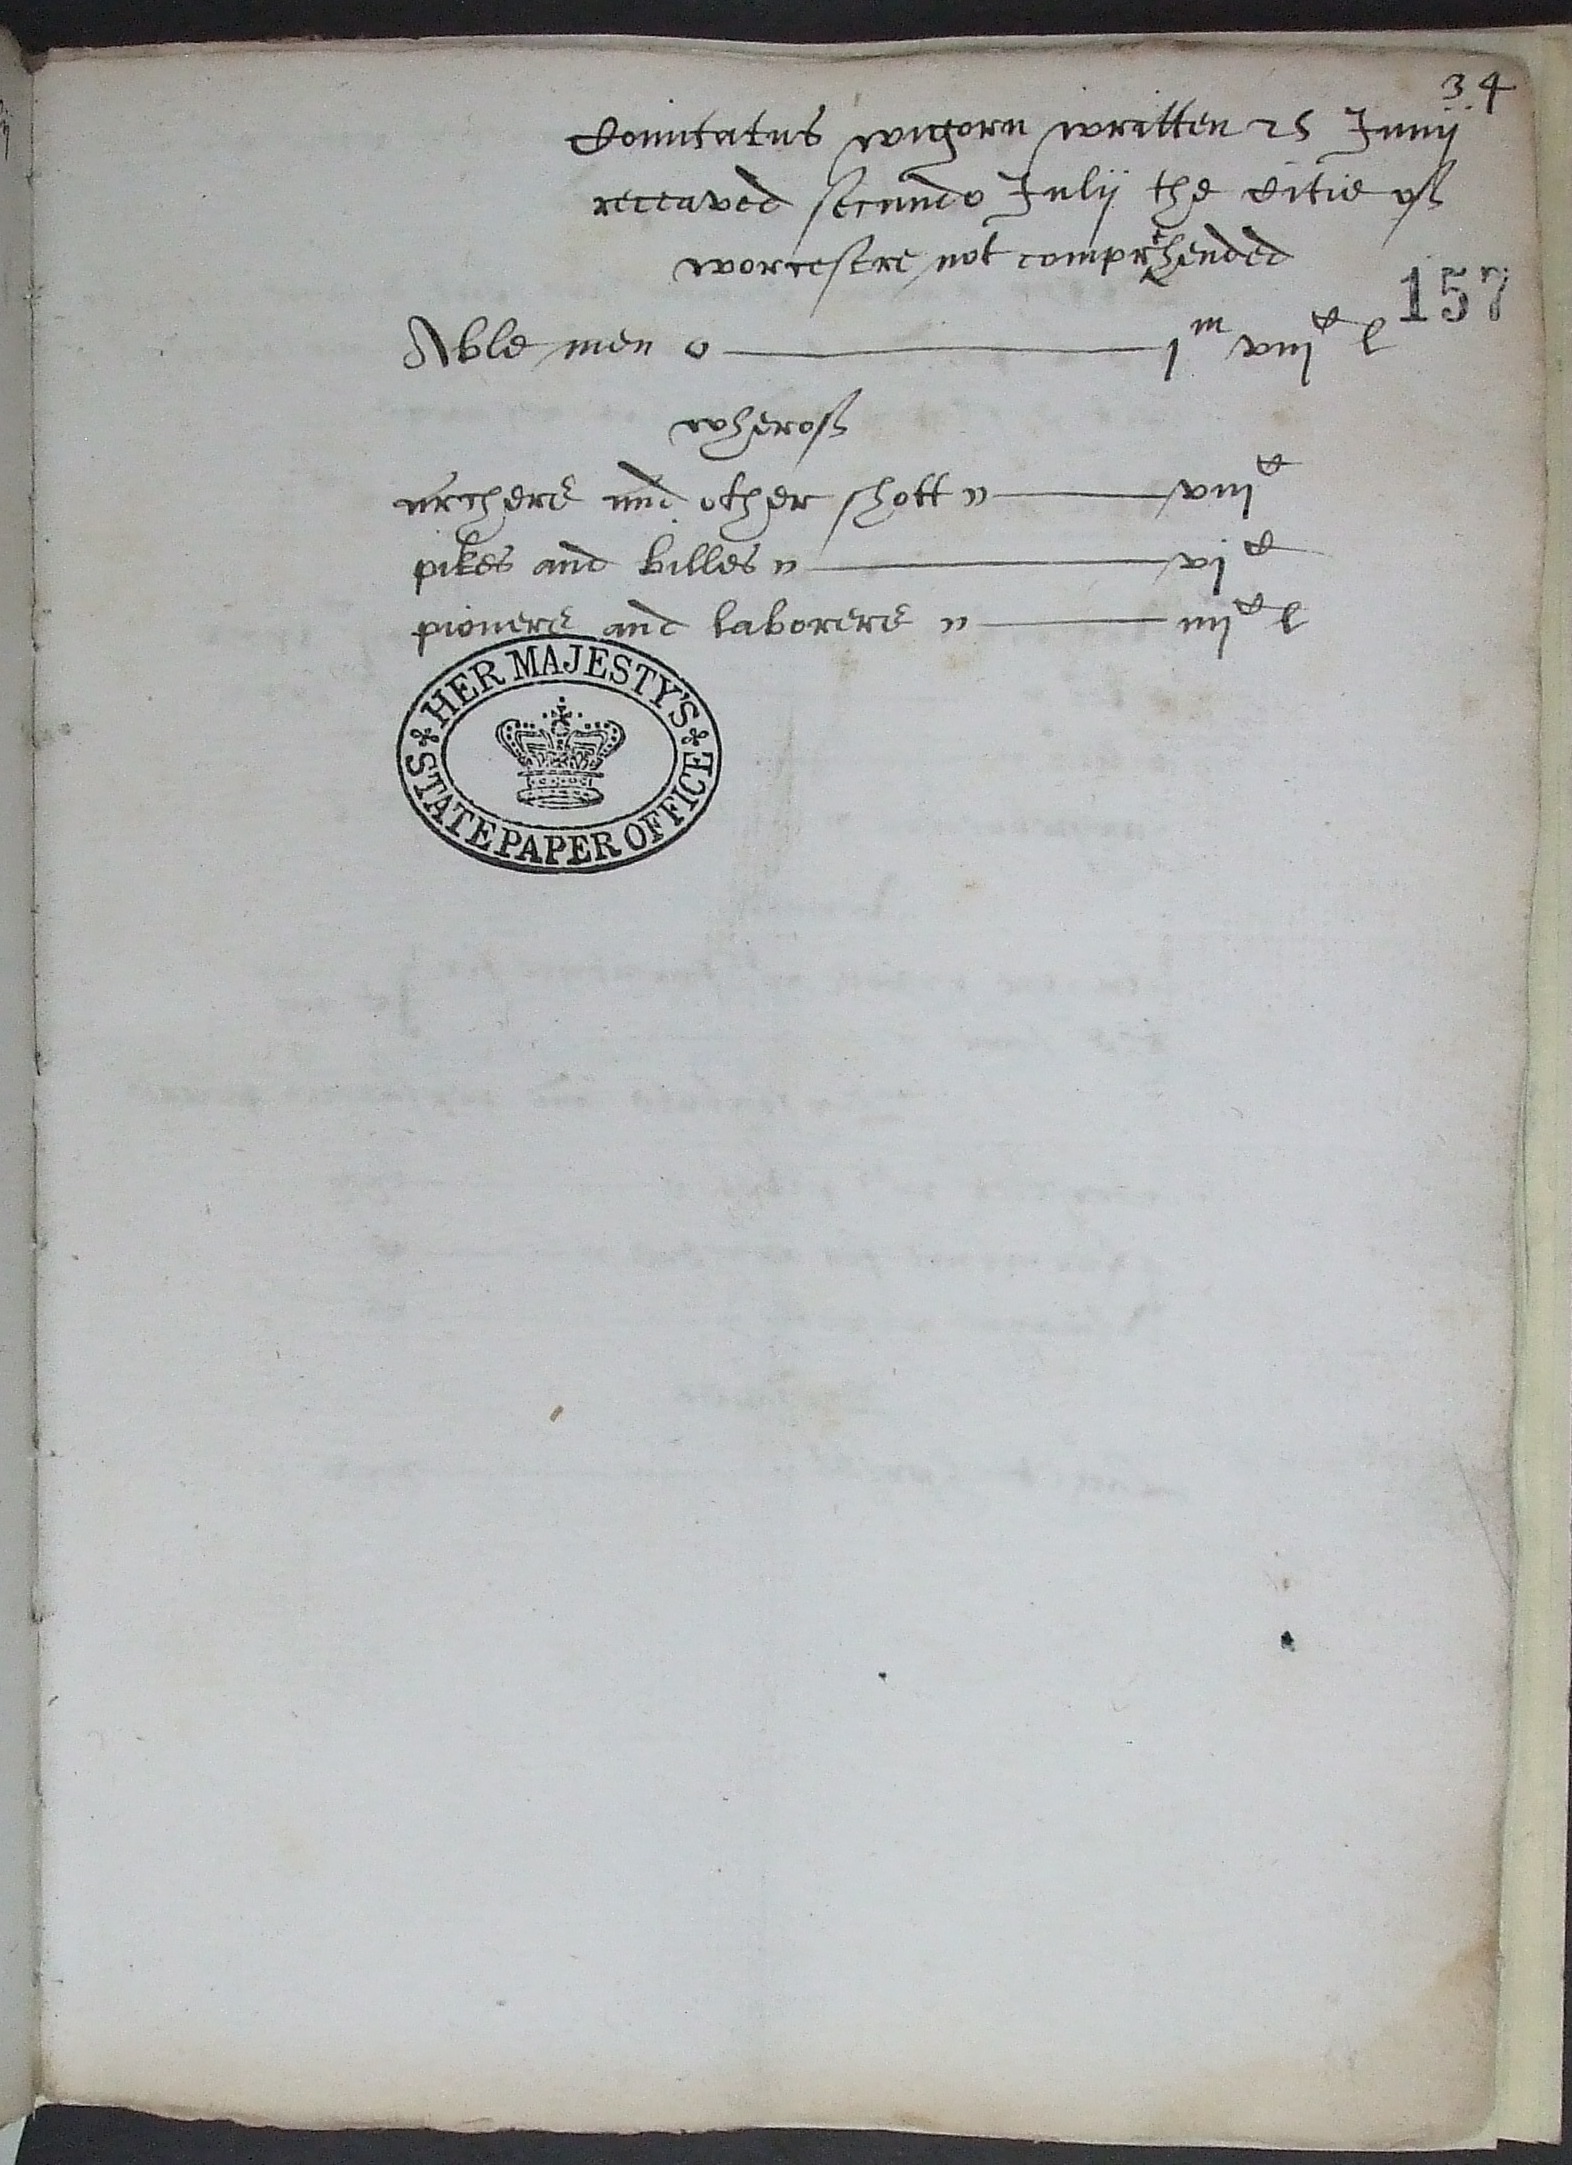 34
Comitatus wigorn written 25 Junij
receaved secundo Julij the Citie of
worcestre not comprehended
157
Able men o — j^m viij^c l
wherof
archers and other shott — viij^c
pikes and billes — vj^c
pioners and laborers — iiij^c l
HER MAJESTY'S
STATE PAPER OFFICE